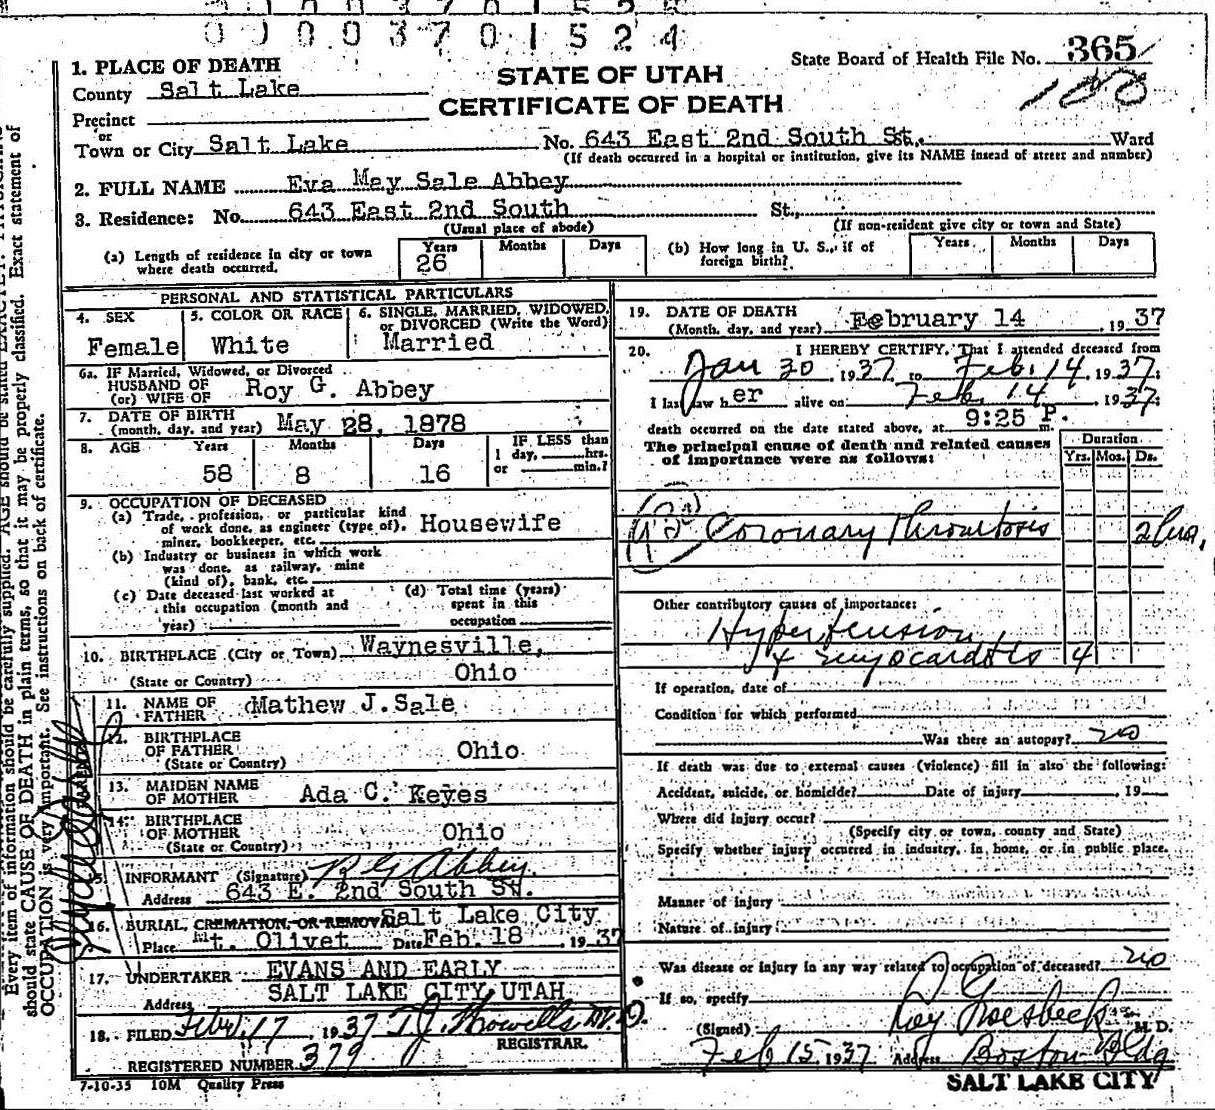 0 0 0 0 3 7 0 1 5 2 4
State Board of Health File No. 365
180
STATE OF UTAH
CERTIFICATE OF DEATH
1. PLACE OF DEATH
County Salt Lake
Precinct
or
Town or City Salt Lake No. 643 East 2nd South St. Ward
(If death occurred in a hospital or institution, give its NAME insead of street and number)
2. FULL NAME Eva May Sale Abbey
3. Residence: No. 643 East 2nd South St.,
(Usual place of abode) (If non-resident give city or town and State)
(a) Length of residence in city or town where death occurred. Years 26 Months Days
(b) How long in U. S., if of foreign birth? Years Months Days
PERSONAL AND STATISTICAL PARTICULARS
4. SEX Female
5. COLOR OR RACE White
6. SINGLE, MARRIED, WIDOWED, or DIVORCED (Write the Word) Married
6a. IF Married, Widowed, or Divorced
HUSBAND OF
(or) WIFE OF Roy G. Abbey
7. DATE OF BIRTH
(month, day, and year) May 28, 1878
8. AGE Years Months Days IF LESS than
1 day, hrs.
or min.?
58 8 16
9. OCCUPATION OF DECEASED
(a) Trade, profession, or particular kind
of work done, as engineer (type of), Housewife
miner, bookkeeper, etc.
(b) Industry or business in which work
was done, as railway, mine
(kind of), bank, etc.
(c) Date deceased last worked at
this occupation (month and
year)
(d) Total time (years)
spent in this
occupation
10. BIRTHPLACE (City or Town) Waynesville,
(State or Country) Ohio
11. NAME OF FATHER Mathew J. Sale
12. BIRTHPLACE
OF FATHER Ohio
(State or Country)
13. MAIDEN NAME
OF MOTHER Ada C. Keyes
14. BIRTHPLACE
OF MOTHER Ohio
(State or Country)
15. INFORMANT (Signature) R G Abbey
Address 643 E. 2nd South St.
16. BURIAL, CREMATION, OR REMOVAL Salt Lake City
Place Mt. Olivet Date Feb. 18, 1937
17. UNDERTAKER EVANS AND EARLY
Address SALT LAKE CITY UTAH
18. FILED Feb. 17, 1937 T J Howells M.D.
REGISTRAR.
REGISTERED NUMBER 379
7-10-35 10M Quality Press
19. DATE OF DEATH
(Month, day, and year) February 14, 1937
20. I HEREBY CERTIFY, That I attended deceased from
Jan 30, 1937, to Feb. 14, 1937;
I last saw her alive on Feb. 14, 1937;
death occurred on the date stated above, at 9:25 P. m.
The principal cause of death and related causes
of importance were as follows:
Duration
Yrs. Mos. Ds.
Coronary Thrombosis 2 hrs.
Other contributory causes of importance:
Hypertension
+ myocarditis 4
If operation, date of
Condition for which performed
Was there an autopsy? no
If death was due to external causes (violence) fill in also the following:
Accident, suicide, or homicide? Date of injury , 19
Where did injury occur?
(Specify city or town, county and State)
Specify whether injury occurred in industry, in home, or in public place.
Manner of injury
Nature of injury
Was disease or injury in any way related to occupation of deceased? no
If so, specify
(Signed) Roy Groesbeck M. D.
Feb 15, 1937 Address Boston Bldg
SALT LAKE CITY
Every item of information should be carefully supplied. AGE should be stated EXACTLY.
should state CAUSE OF DEATH in plain terms, so that it may be properly classified. Exact statement of
OCCUPATION is very important. See instructions on back of certificate.